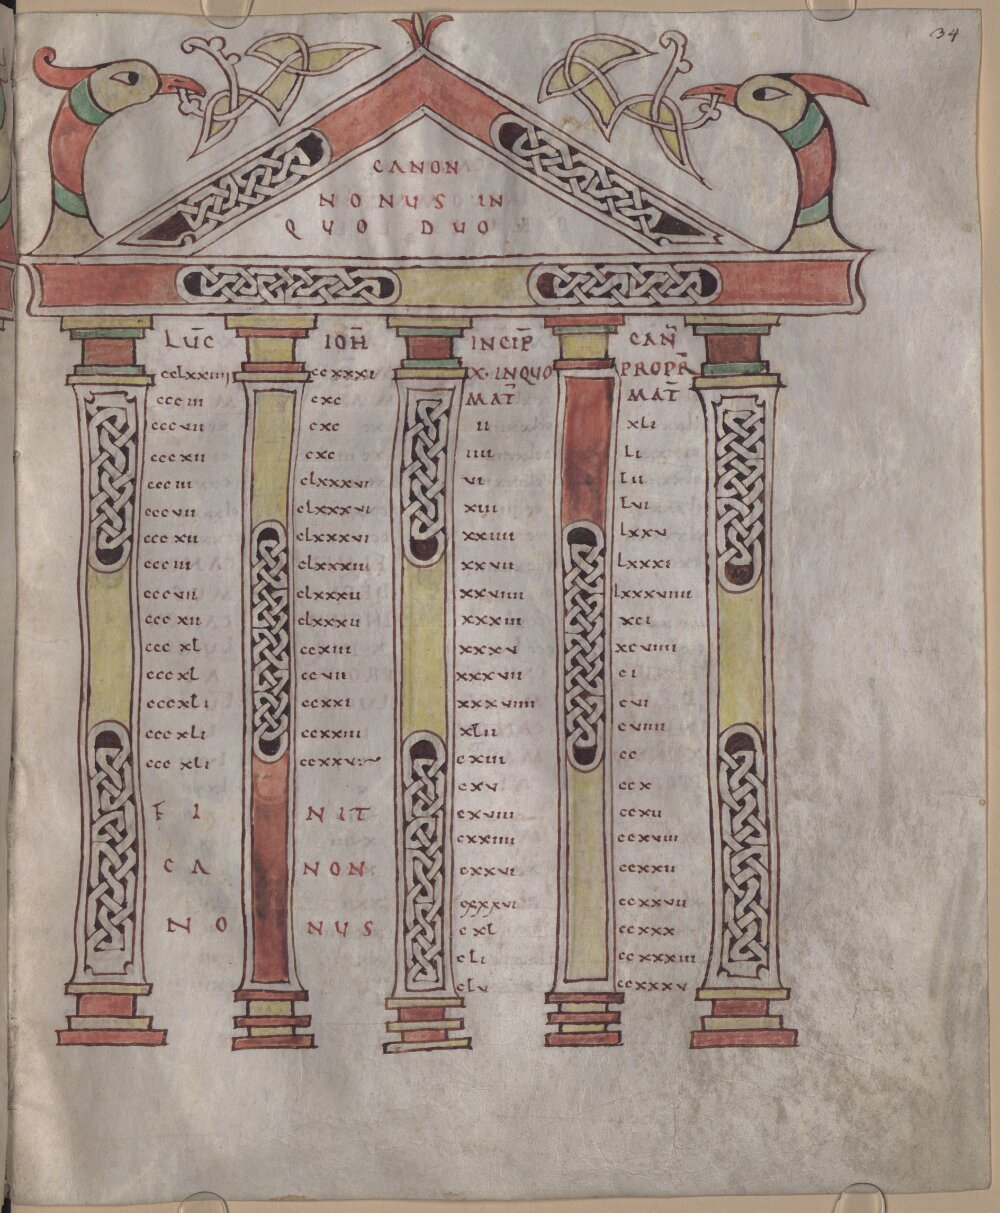 34
CANON
NONUS IN
QUO DUO
LUC̄
cclxxiiii
ccciii
cccvii
cccxii
ccciii
cccvii
cccxii
ccciii
cccvii
cccxii
cccxl
cccxl
cccxli
cccxli
cccxli
IOH̄
ccxxxi
cxc
cxc
cxc
clxxxvi
clxxxvi
clxxxvi
clxxxiii
clxxxii
clxxxii
ccxiii
ccvii
ccxxi
ccxxiii
ccxxv
FI NIT
CA NON
NO NUS
INCIP̄ CAN̄
X · IN QUO PROPR̄
MAT̄
ii
iiii
vi
xiii
xxiiii
xxvii
xxviiii
xxxiii
xxxv
xxxvii
xxxviiii
xlii
cxiii
cxv
cxviii
cxxiiii
cxxvi
cxxxvi
cxl
cli
clv
MAT̄
xli
li
lii
lvi
lxxv
lxxxi
lxxxviiii
xci
xcviiii
ci
cvi
cviiii
cc
ccx
ccxii
ccxviii
ccxxii
ccxxvii
ccxxx
ccxxxiii
ccxxxv